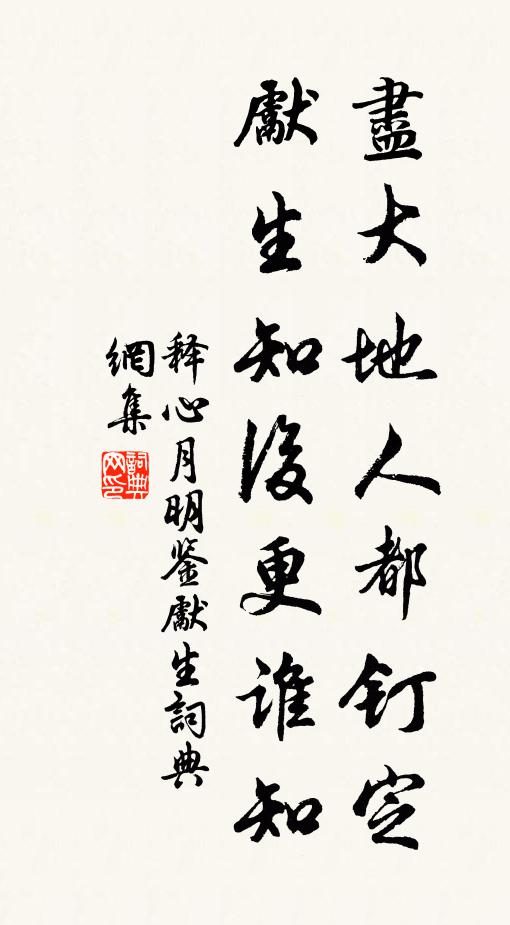 盡大地人都釘定
獻生知後更誰知
释心月明鉴獻生詞典
網集
詞典
网印